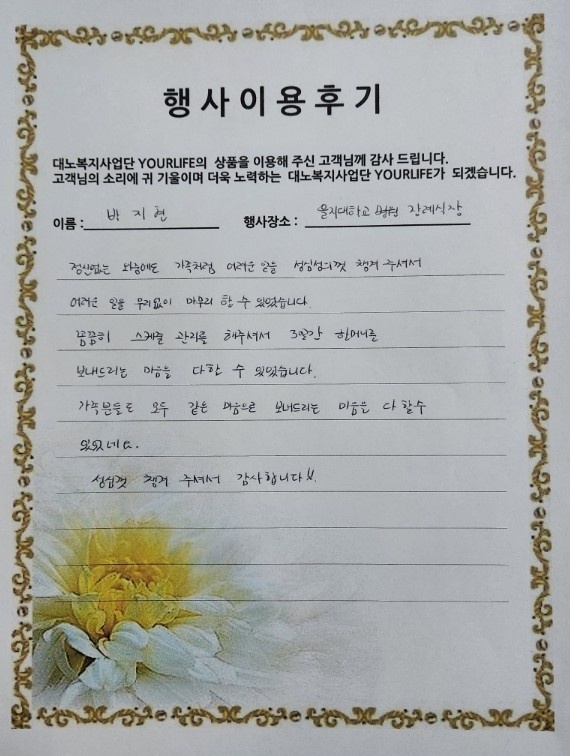 행사이용후기
대노복지사업단 YOURLIFE의 상품을 이용해 주신 고객님께 감사 드립니다.
고객님의 소리에 귀 기울이며 더욱 노력하는 대노복지사업단 YOURLIFE가 되겠습니다.
이름 : 박지현 행사장소 : 을지대학교 병원 장례식장
정신없는 와중에도 가족처럼 어려운 일을 성심성의껏 챙겨 주셔서
어려운 일을 무리없이 마무리 할 수 있었습니다.
꼼꼼히 스케줄 관리를 해주셔서 3일간 할머니를
보내드리는 마음을 다할 수 있었습니다.
가족분들도 모두 같은 마음으로 보내드리는 마음을 다 할수
있었네요.
성심껏 챙겨 주셔서 감사합니다!!